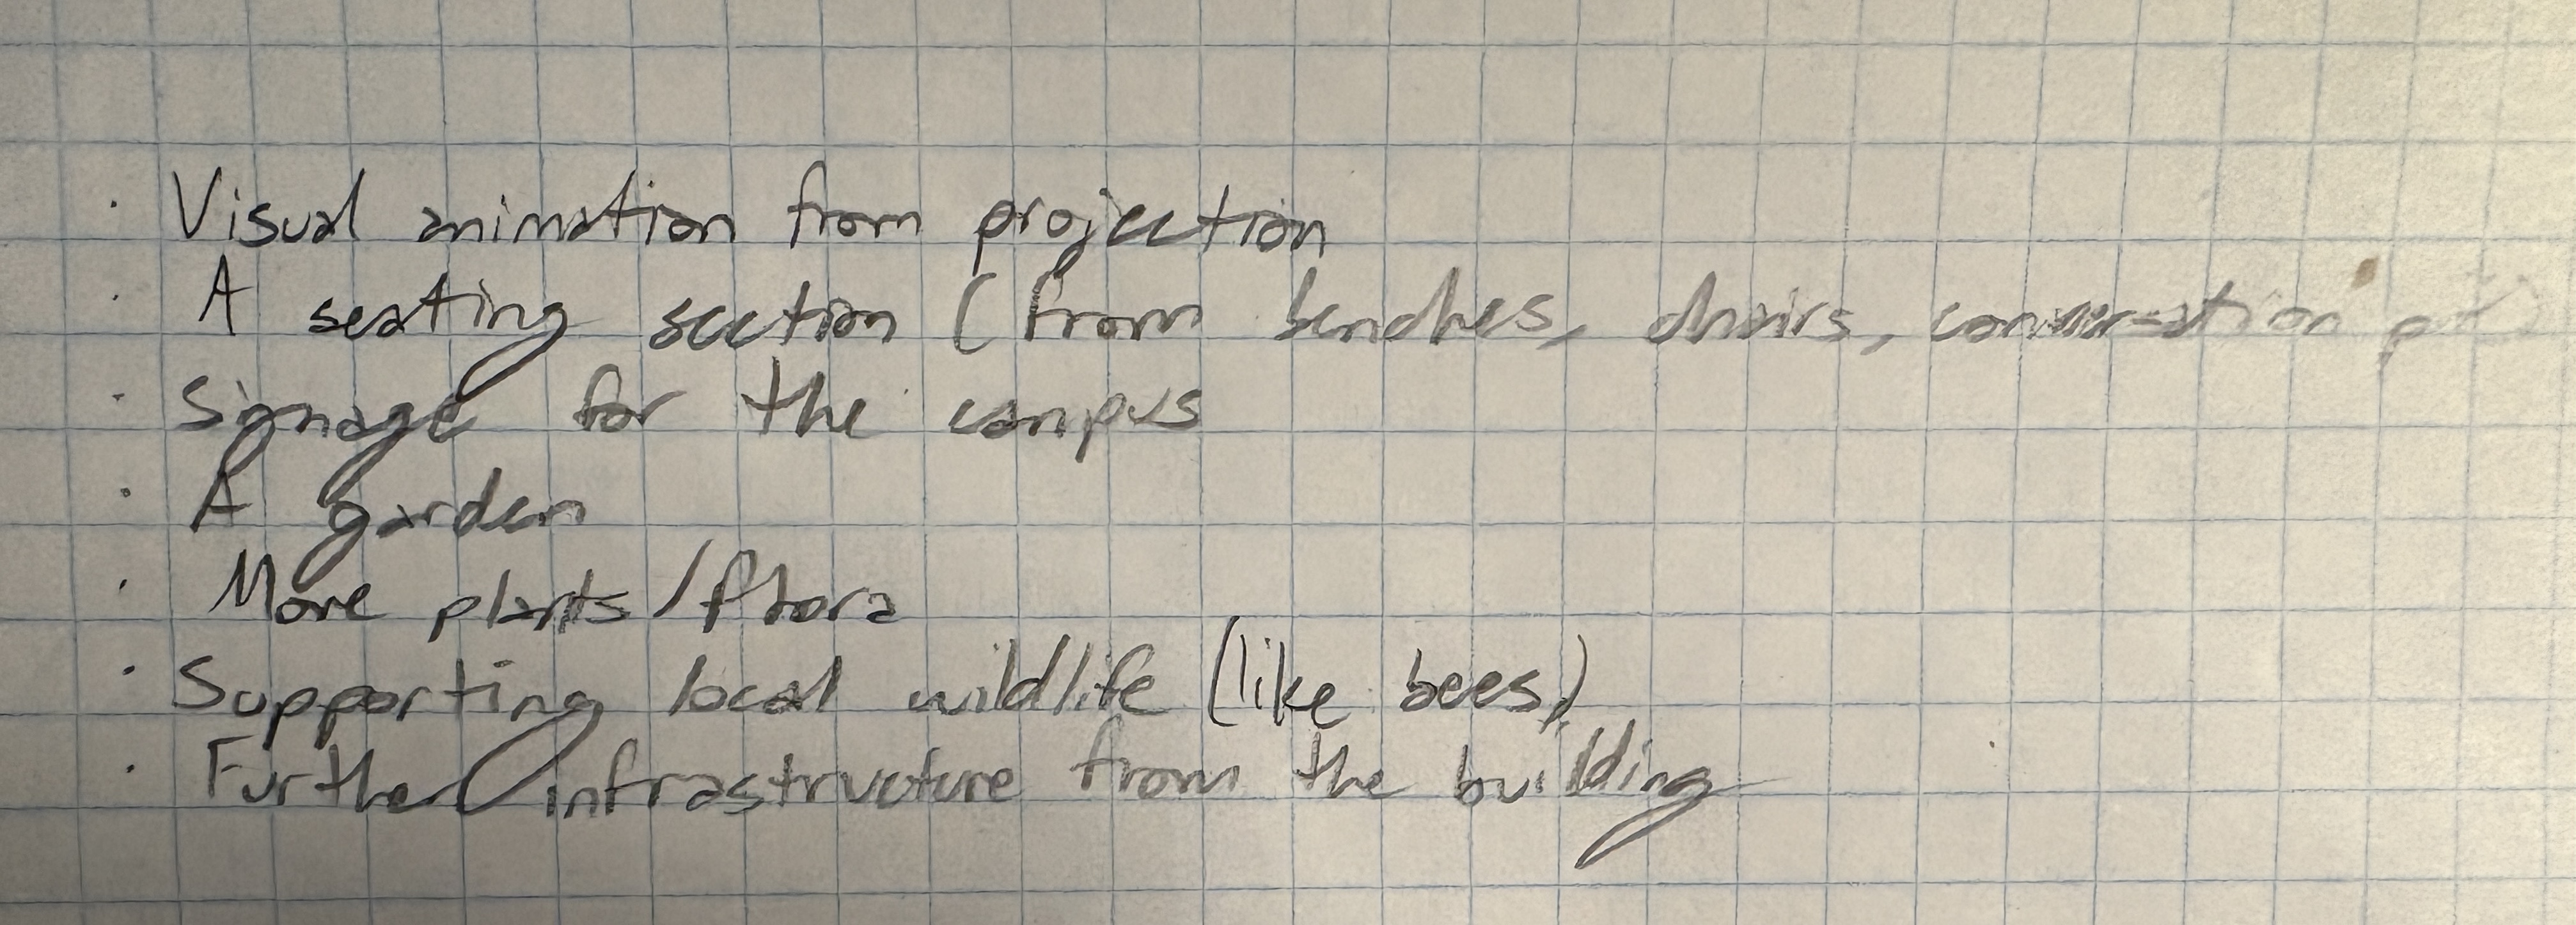 · Visual animation from projection
· A seating section (from benches, chairs, conversation
· Signage for the campus
· A garden
· More plants/flora
· Supporting local wildlife (like bees)
· Further infrastructure from the building